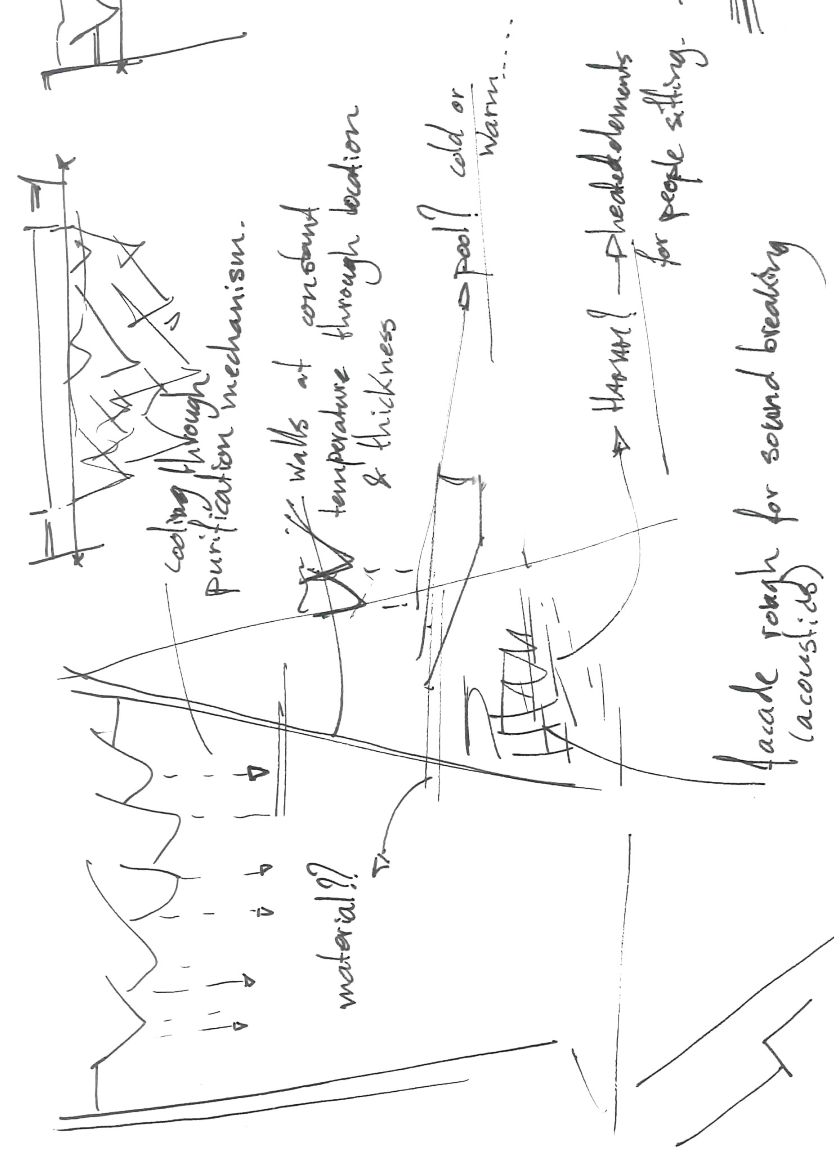 cooling through
purification mechanism.
walls at constant
temperature through location
& thickness
pool? cold or
warm.....
HAMAM? heated elements
for people sitting.
material??
facade rough for sound breaking
(acoustics)